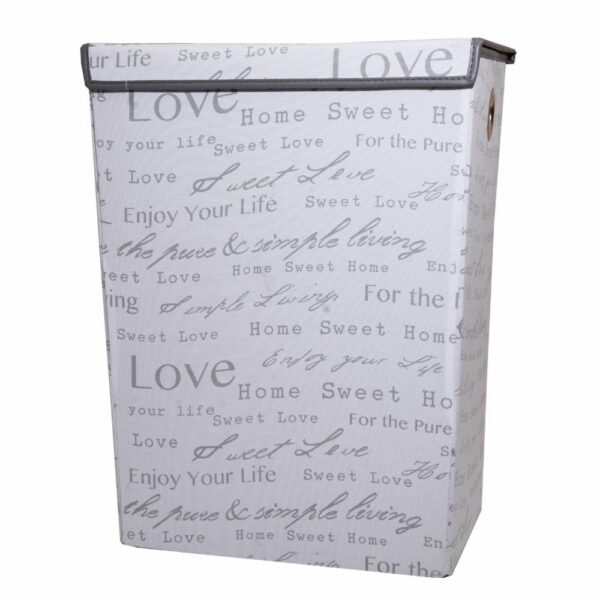 ur Life Sweet Love Love
Love
Home Sweet Ho
oy your life Sweet Love For the Pure
t Love Sweet Love Ho
Enjoy Your Life Sweet Love
e the pure & simple living
eet Love Home Sweet Home Enj
ing Simple Living For the
Sweet Love Home Sweet Home
Love Enjoy your Life
Home Sweet Ho
your life Sweet Love For the Pure
Love Sweet Love Ho
Enjoy Your Life Sweet Love
the pure & simple living
et Love Home Sweet Home En
For the